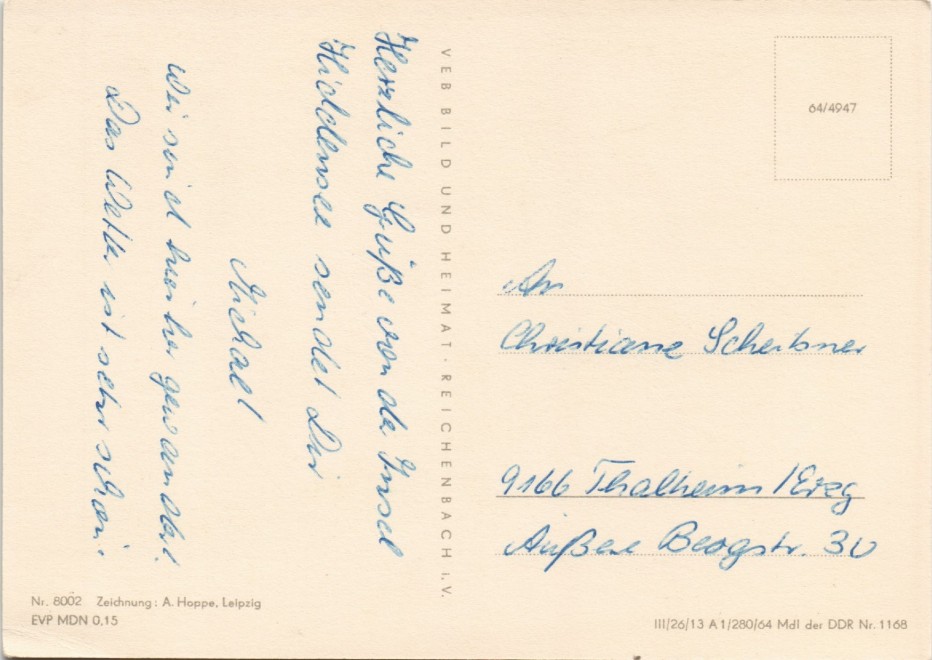 Herzliche Grüße von der Insel
Hiddensee sendet Dir
Michael
Wir sind hierher gewandert.
Das Wetter ist sehr schön.
VEB BILD UND HEIMAT · REICHENBACH I. V.
64/4947
An
Christiane Scheibner
9166 Thalheim/Erzg
Äußere Bergstr. 30
Nr. 8002 Zeichnung: A. Hoppe, Leipzig
EVP MDN 0,15
III/26/13 A 1/280/64 MdI der DDR Nr. 1168